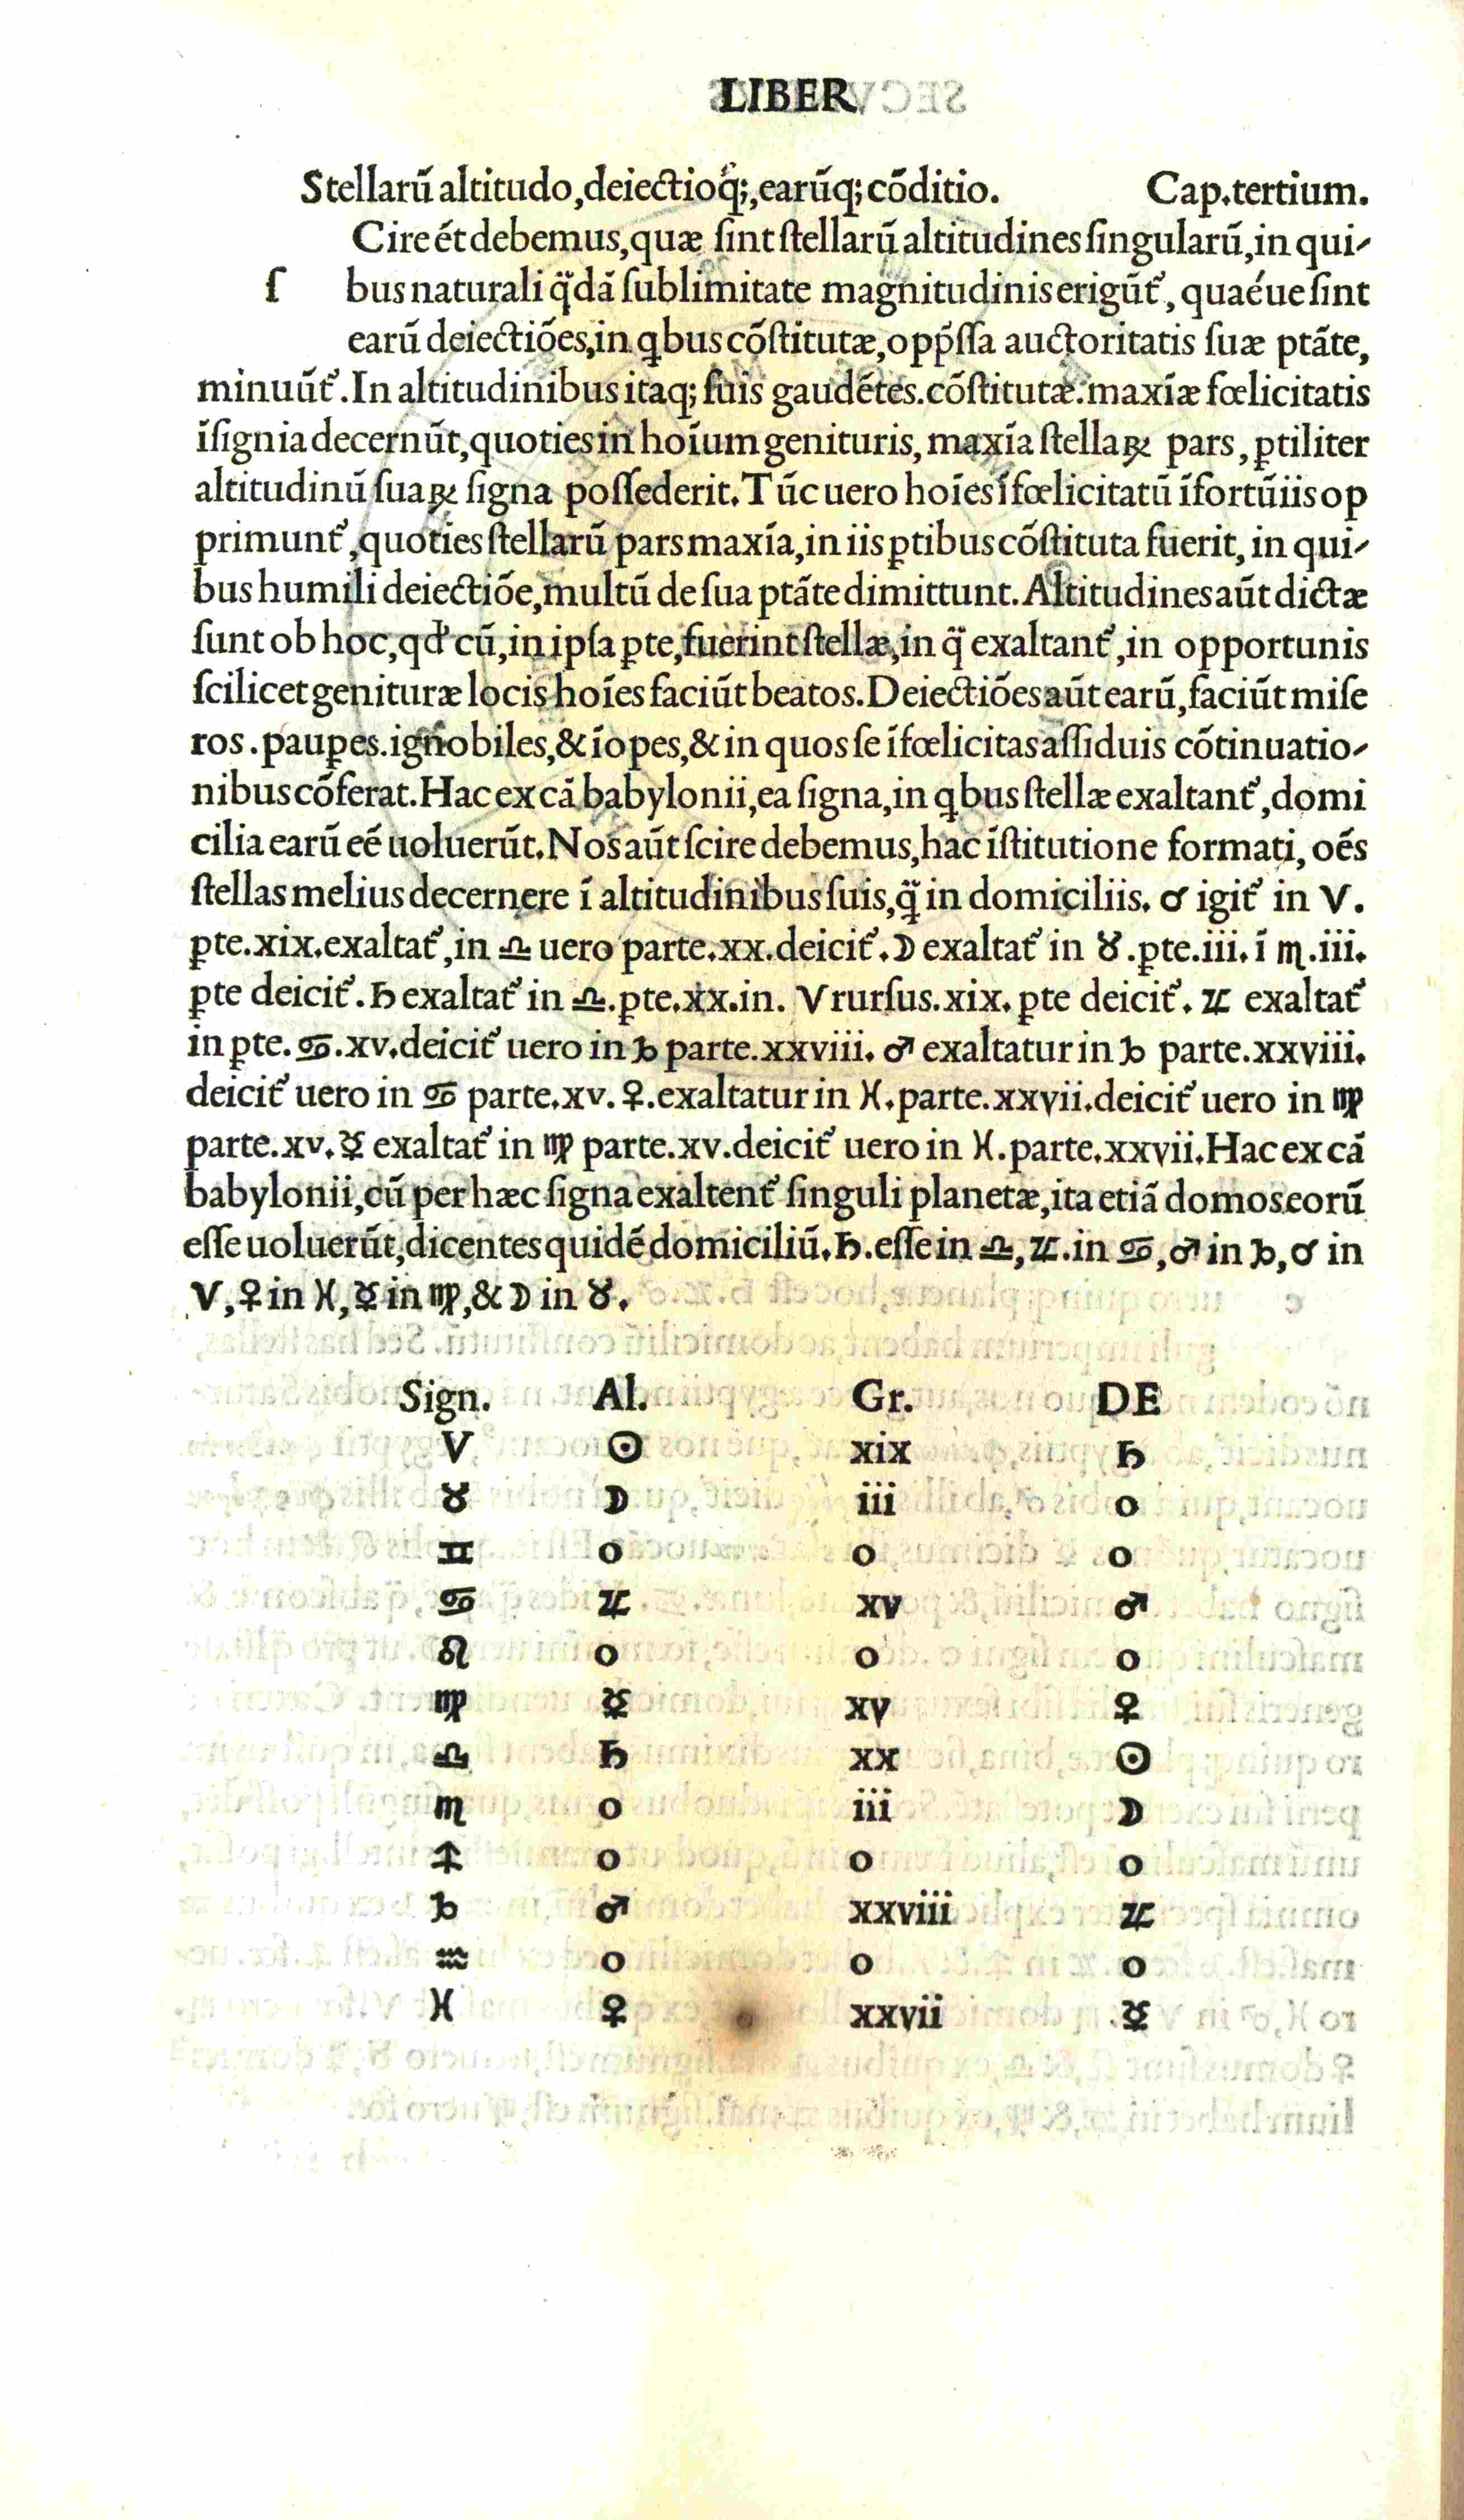 LIBER
Stellarū altitudo,deiectioq̃;,earūq;cōditio. Cap.tertium.
Cire ét debemus,quæ ſint ſtellarū altitudines ſingularū,in qui⸗
ſ bus naturali q̈dā ſublimitate magnitudinis erigūt᷑, quaéue ſint
earū deiectiões,in qbus cōſtitutæ,opp̄ſſa auctoritatis ſuæ ptāte,
minuūt᷑.In altitudinibus itaq; ſuis gaudētes.cōſtitutæ.maxīæ fœlicitatis
īſignia decernūt,quoties in hoīum genituris, maxīa ſtellaꝝ pars, ꝑtiliter
altitudinū ſuaꝝ ſigna poſſederit.Tūc uero hoīes īfœlicitatū īfortūiis op
primunt᷑,quoties ſtellarū pars maxīa,in iis ꝑtibus cōſtituta fuerit, in qui⸗
bus humili deiectiōe,multū de ſua ptāte dimittunt.Altitudines aūt dictæ
ſunt ob hoc,qd' cū,in ipſa ꝑte,fuerint ſtellæ,in q̈ exaltant᷑,in opportunis
ſcilicet genituræ locis hoīes faciūt beatos.Deiectiões aūt earū,faciūt miſe
ros.pauꝑes.ignobiles,& īopes,& in quos ſe īfœlicitas aſſiduis cōtinuatio⸗
nibus cōferat.Hac ex cā babylonii,ea ſigna,in qbus ſtellæ exaltant᷑,domi
cilia earū eē uoluerūt.Nos aūt ſcire debemus,hac īſtitutione formati, oēs
ſtellas melius decernere ī altitudinibus ſuis,q̈ in domiciliis. ☌ igit᷑ in V.
ꝑte.xix.exaltat᷑,in ♎ uero parte.xx.deicit᷑.☽ exaltat᷑ in ♉.ꝑte.iii. ī ♏.iii.
ꝑte deicit᷑.♄ exaltat᷑ in ♎.ꝑte.xx.in. V rurſus.xix. ꝑte deicit᷑. ♃ exaltat᷑
in ꝑte.♋.xv.deicit᷑ uero in ♑ parte.xxviii. ♂ exaltatur in ♑ parte.xxviii.
deicit᷑ uero in ♋ parte.xv.♀.exaltatur in ♓.parte.xxvii.deicit᷑ uero in ♍
parte.xv.☿ exaltat᷑ in ♍ parte.xv.deicit᷑ uero in ♓.parte.xxvii.Hac ex cā
babylonii,cū per hæc ſigna exaltent᷑ ſinguli planetæ,ita etiā domos eorū
eſſe uoluerūt,dicentes quidē domiciliū.♄.eſſe in ♎,♃.in ♋,♂ in ♑,☌ in
V,♀ in ♓,☿ in ♍,& ☽ in ♉.
Sign. Al. Gr. DE
V ☉ xix ♄
♉ ☽ iii o
♊ o o o
♋ ♃ xv ♂
♌ o o o
♍ ☿ xv ♀
♎ ♄ xx ☉
♏ o iii ☽
♐ o o o
♑ ♂ xxviii ♃
♒ o o o
♓ ♀ xxvii ☿